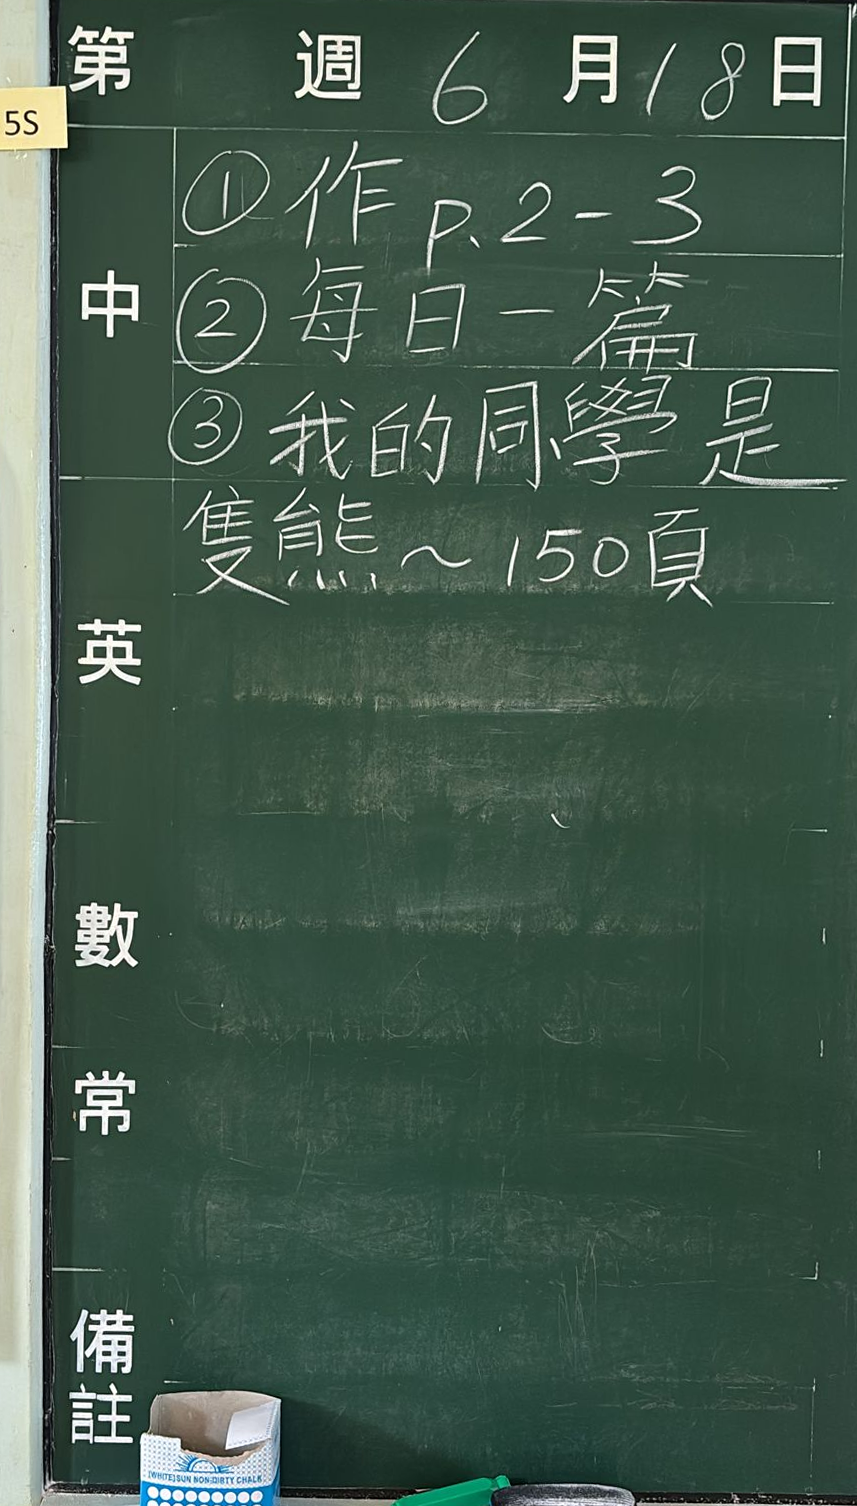 第 週 6 月 18 日
5S
中
① 作 p.2-3
② 每日一篇
③ 我的同學是
隻熊~150頁
英
數
常
備
註
[WHITE] SUN NON-DIRTY CHALK